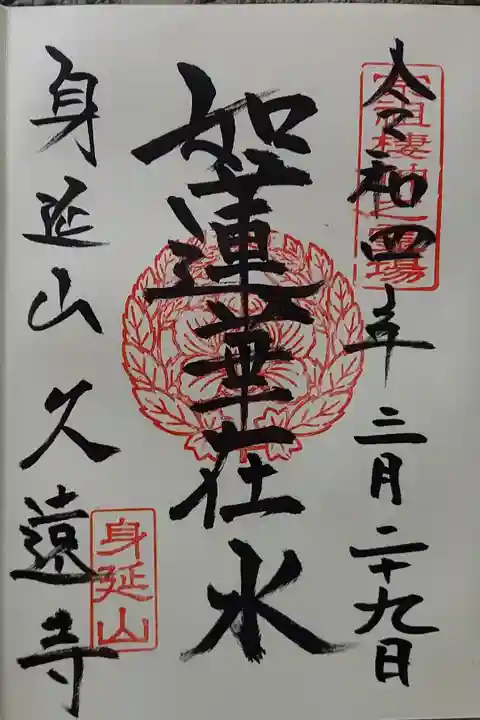 令和四年三月二十九日
宗祖棲神之霊場
如蓮華在水
身延山久遠寺
身延山